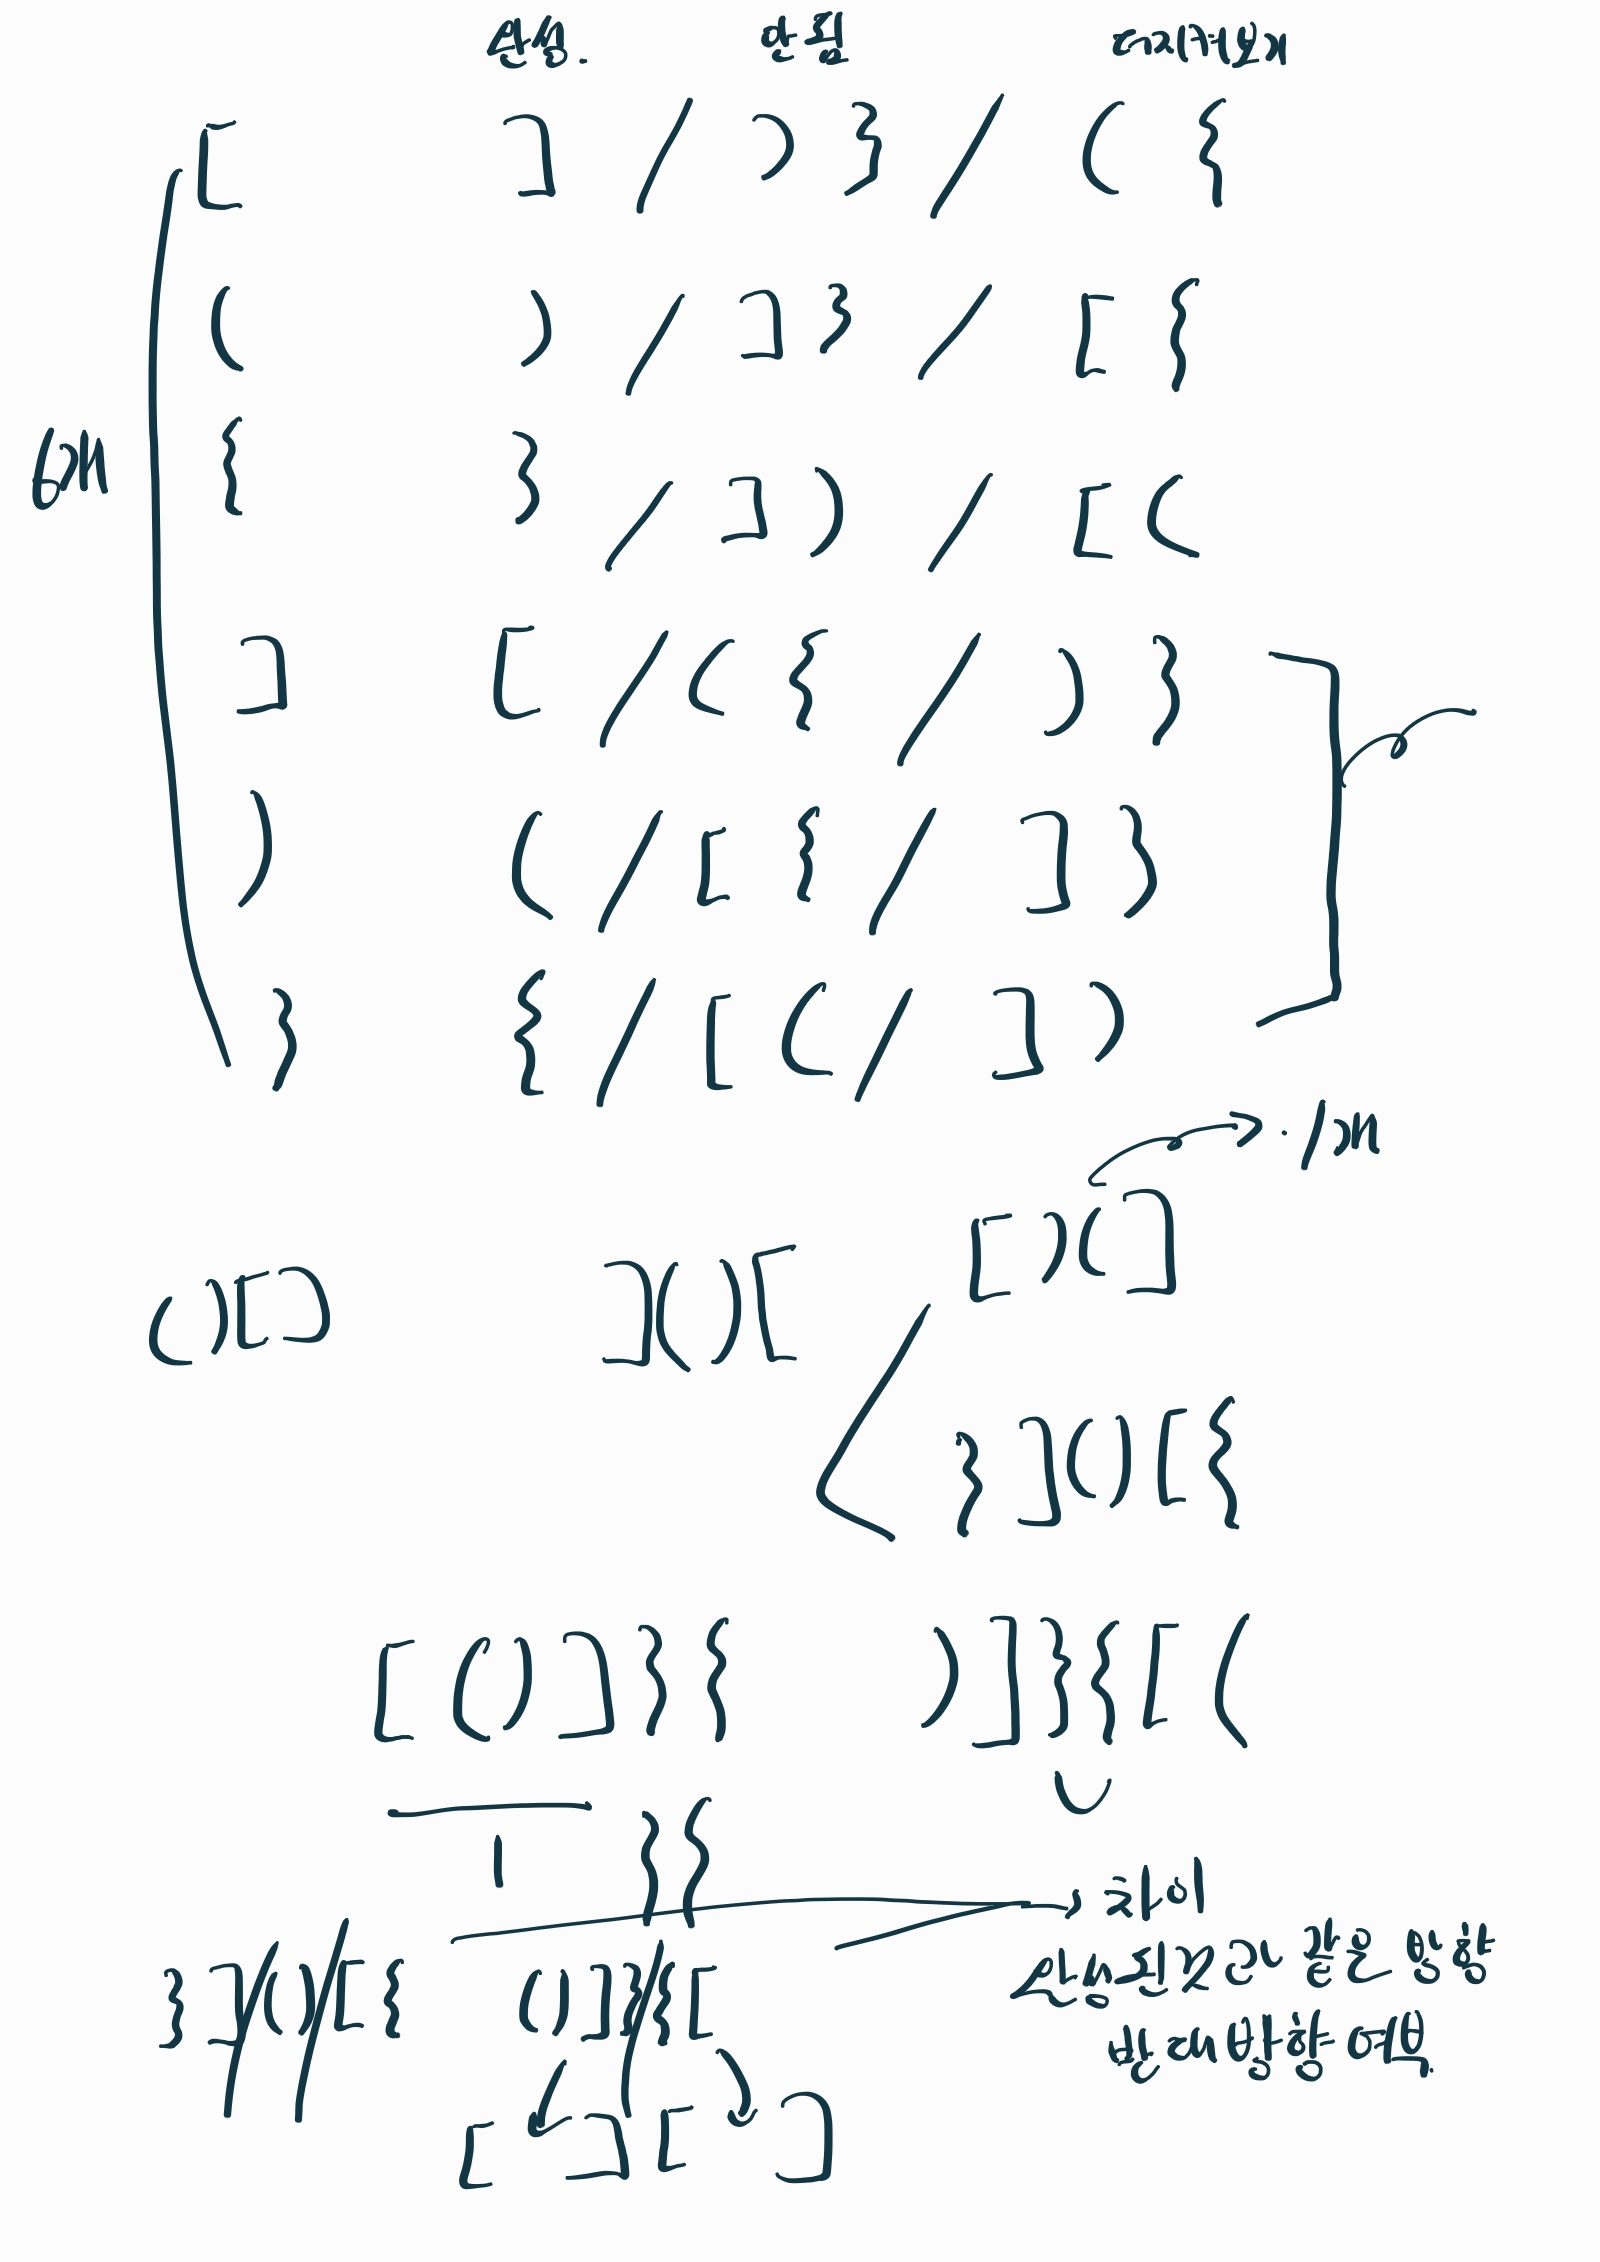 완성. 안됨 더지켜보기
[ ] / ) } / ( {
( ) / ] } / [ {
6개
{ } / ] ) / [ (
] [ / ( { / ) }
) ( / [ { / ] }
} { / [ ( / ] )
→ . 1개
[ ) ( ]
( ) [ ] ] ( ) [
} ] ( ) [ {
[ ( ) ] } { ) ] } { [ (
1 } {
→ 차이
} ] / ( ) / [ { ( ) ] } / { [ 완성된것과 같은 방향
반대방향 여부.
[ ] [ ]